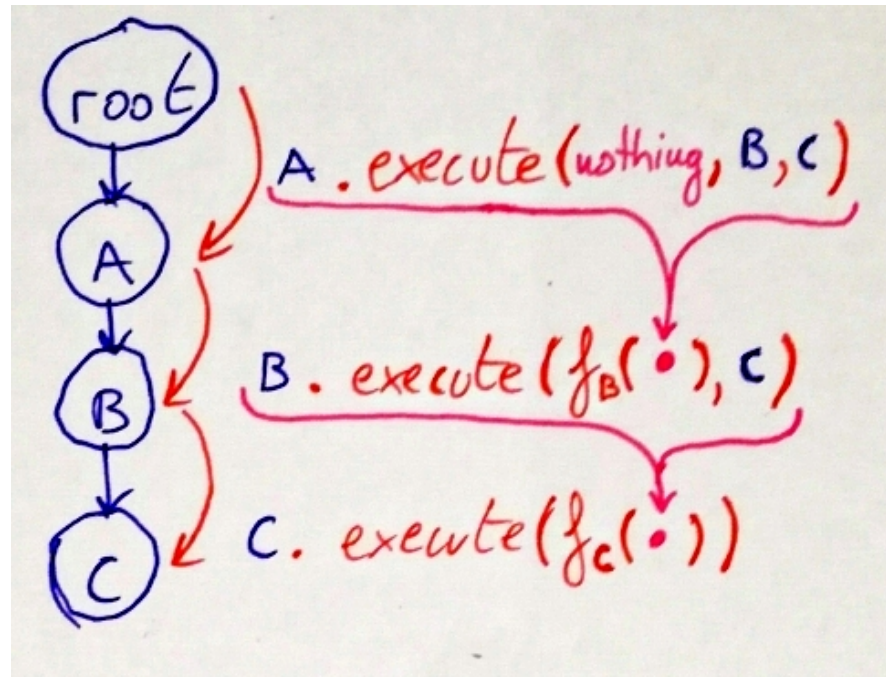 root
A . execute (nothing, B, C)
A
B . execute (f_B(•), C)
B
C . execute (f_C(•))
C